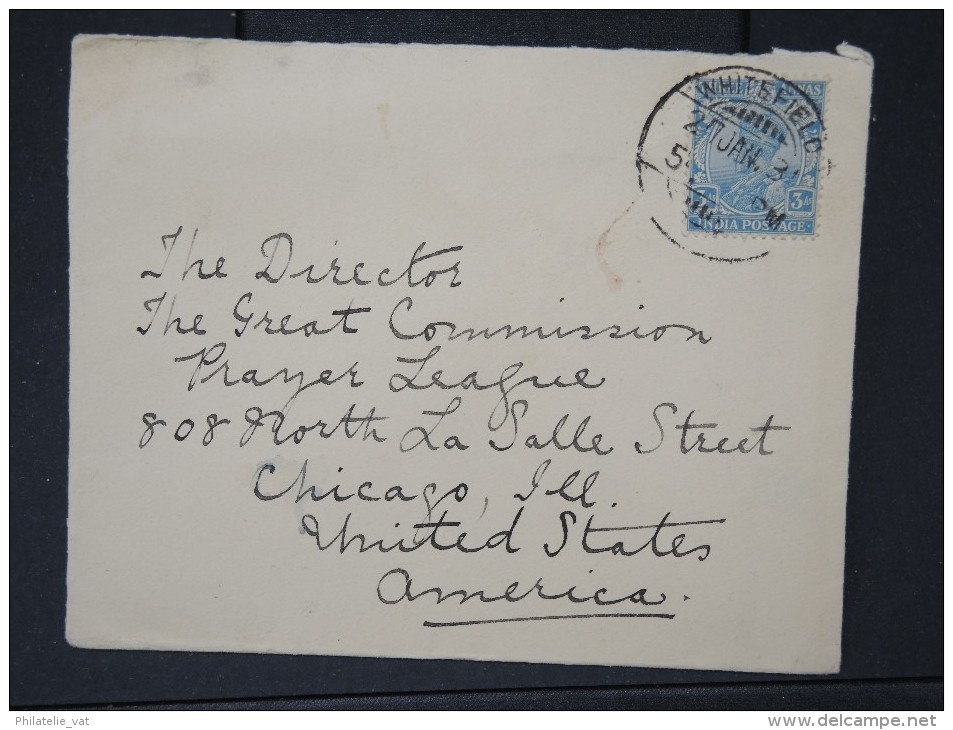 WHITEFIELD
27 JAN. 3
PM
3 As
INDIA POSTAGE
The Director
The Great Commission
Prayer League
808 North La Salle Street
Chicago, Ill.
United States
America.
Philatelie_vat
www.delcampe.net